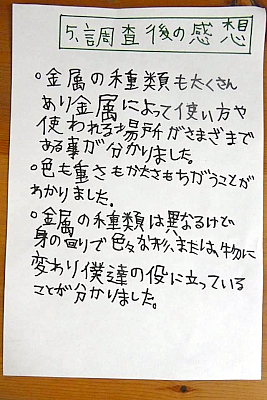 5、調査後の感想
○金属の種類も太くさん
あり金属によって使い方や
使われる場所がさまざまで
ある事が分かりました。
○色も重さもかたさもちがうことが
わかりました。
○金属の種類は異なるけど
身の回りで色々な形、または、物に
変わり僕達の役に立っている
ことが分かりました。